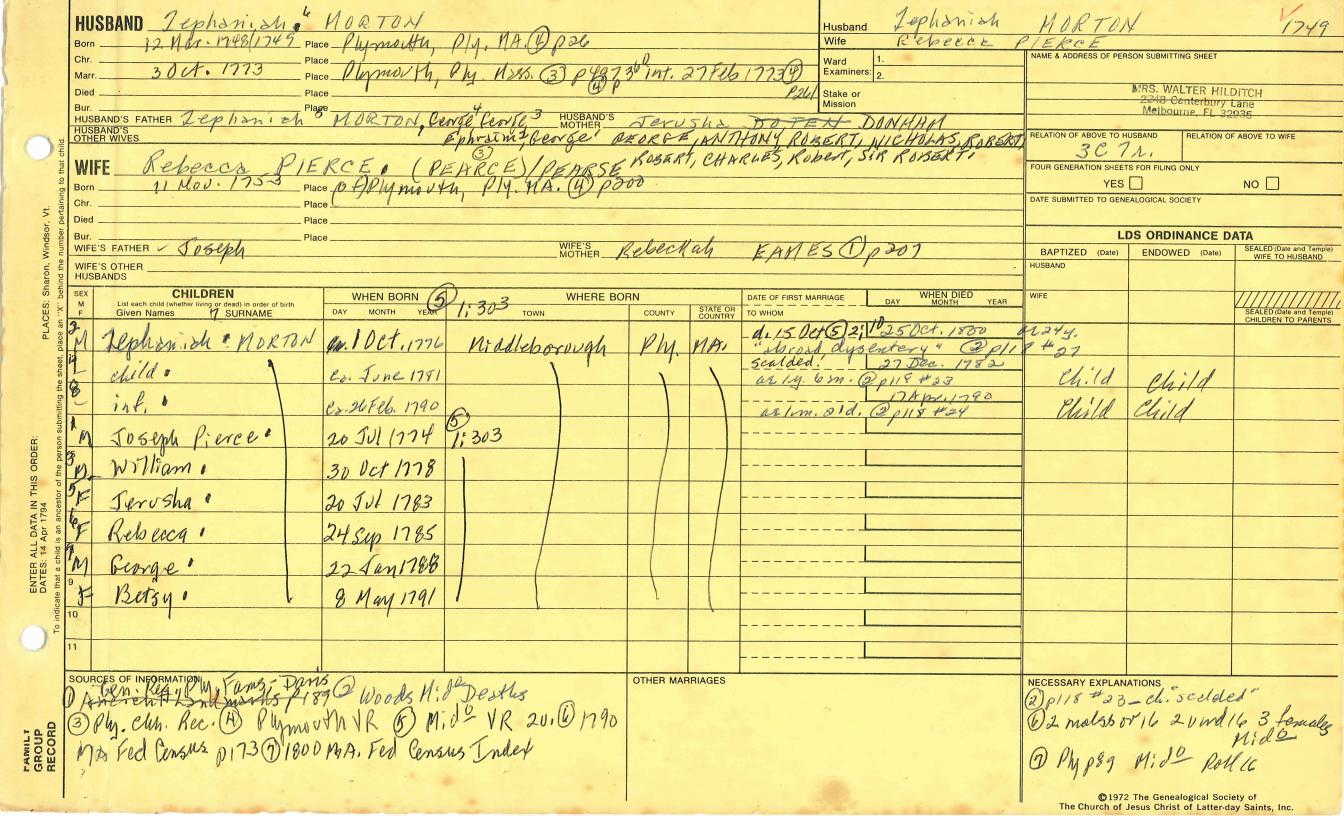 HUSBAND Zephaniah 6 MORTON
Born 12 Mar. 1748/1749 Place Plymouth, Ply. MA. (4) p26
Chr. Place
Marr. 3 Oct. 1773 Place Plymouth, Ply Mass. (3) int. 27 Feb 1773 (4)
Died Place (4) p p261
Bur. Place
HUSBAND'S FATHER Zephaniah 5 MORTON, George 4 George 3 HUSBAND'S MOTHER Jerusha DOTEN DONHAM
HUSBAND'S OTHER WIVES Ephraim 2, George 1 GEORGE, ANTHONY, ROBERT, NICHOLAS, ROBERT
ROBERT, CHARLES, Robert, SIR ROBERT.
WIFE Rebecca PIERCE. (PEARCE)/PEARSE (3)
Born 11 Nov. 1753 Place Plymouth, Ply. MA. (4) p200
Chr. Place
Died Place
Bur. Place
WIFE'S FATHER Joseph WIFE'S MOTHER Rebeckah EAMES (1) p207
WIFE'S OTHER HUSBANDS
Husband Zephaniah MORTON 1749
Wife Rebecca PIERCE
Ward Examiners: 1.
2.
Stake or Mission
NAME & ADDRESS OF PERSON SUBMITTING SHEET
MRS. WALTER HILDITCH
2248 Canterbury Lane
Melbourne, FL 32935
RELATION OF ABOVE TO HUSBAND RELATION OF ABOVE TO WIFE
3C 7r.
FOUR GENERATION SHEETS FOR FILING ONLY
YES NO
DATE SUBMITTED TO GENEALOGICAL SOCIETY
LDS ORDINANCE DATA
BAPTIZED (Date) ENDOWED (Date) SEALED (Date and Temple) WIFE TO HUSBAND
HUSBAND
WIFE
SEALED (Date and Temple) CHILDREN TO PARENTS
SEX M F CHILDREN WHEN BORN (5) 1:303 WHERE BORN DATE OF FIRST MARRIAGE WHEN DIED
List each child (whether living or dead) in order of birth
Given Names 7 SURNAME DAY MONTH YEAR TOWN COUNTY STATE OR COUNTRY TO WHOM DAY MONTH YEAR
2 M Zephaniah MORTON 1 Oct. 1776 Middleborough Ply. MA. d. 15 Oct (5) 2:10 25 Oct. 1800 24y.
"abroad dysentery" (2) p118 #27
4 - child. ca. June 1781 scalded! 27 Dec. 1782 Child Child
1y. 6m. (2) p118 #23
8 - inf. ca. 26 Feb. 1790 17 Apr. 1790 Child Child
1m. old. (2) p118 #24
1 M Joseph Pierce 20 Jul 1774 (5) 1:303
3 M William 30 Oct 1778
5 F Jerusha 20 Jul 1783
6 F Rebecca 24 Sep 1785
7 M George 22 Jan 1788
9 F Betsy 8 May 1791
10
11
SOURCES OF INFORMATION
(1) Gen. Reg. Ply. Fams - Davis
Ancient Landmarks p189 (2) Woods Mido Deaths
(3) Ply. Chh. Rec. (4) Plymouth VR (5) Mido VR 2v. (6) 1790
MA Fed Census p173 (7) 1800 MA. Fed Census Index
OTHER MARRIAGES
NECESSARY EXPLANATIONS
(2) p118 #23 - ch. "scalded"
(6) 2 males ov 16 2 und 16 3 females
Mido
(7) Ply p89 Mido Roll 16
©1972 The Genealogical Society of
The Church of Jesus Christ of Latter-day Saints, Inc.
PLACES: Sharon, Windsor, Vt.
ENTER ALL DATA IN THIS ORDER:
DATES: 14 Apr 1794
To indicate that a child is an ancestor of the person submitting the sheet, place an "X" behind the number pertaining to that child.
FAMILY
GROUP
RECORD